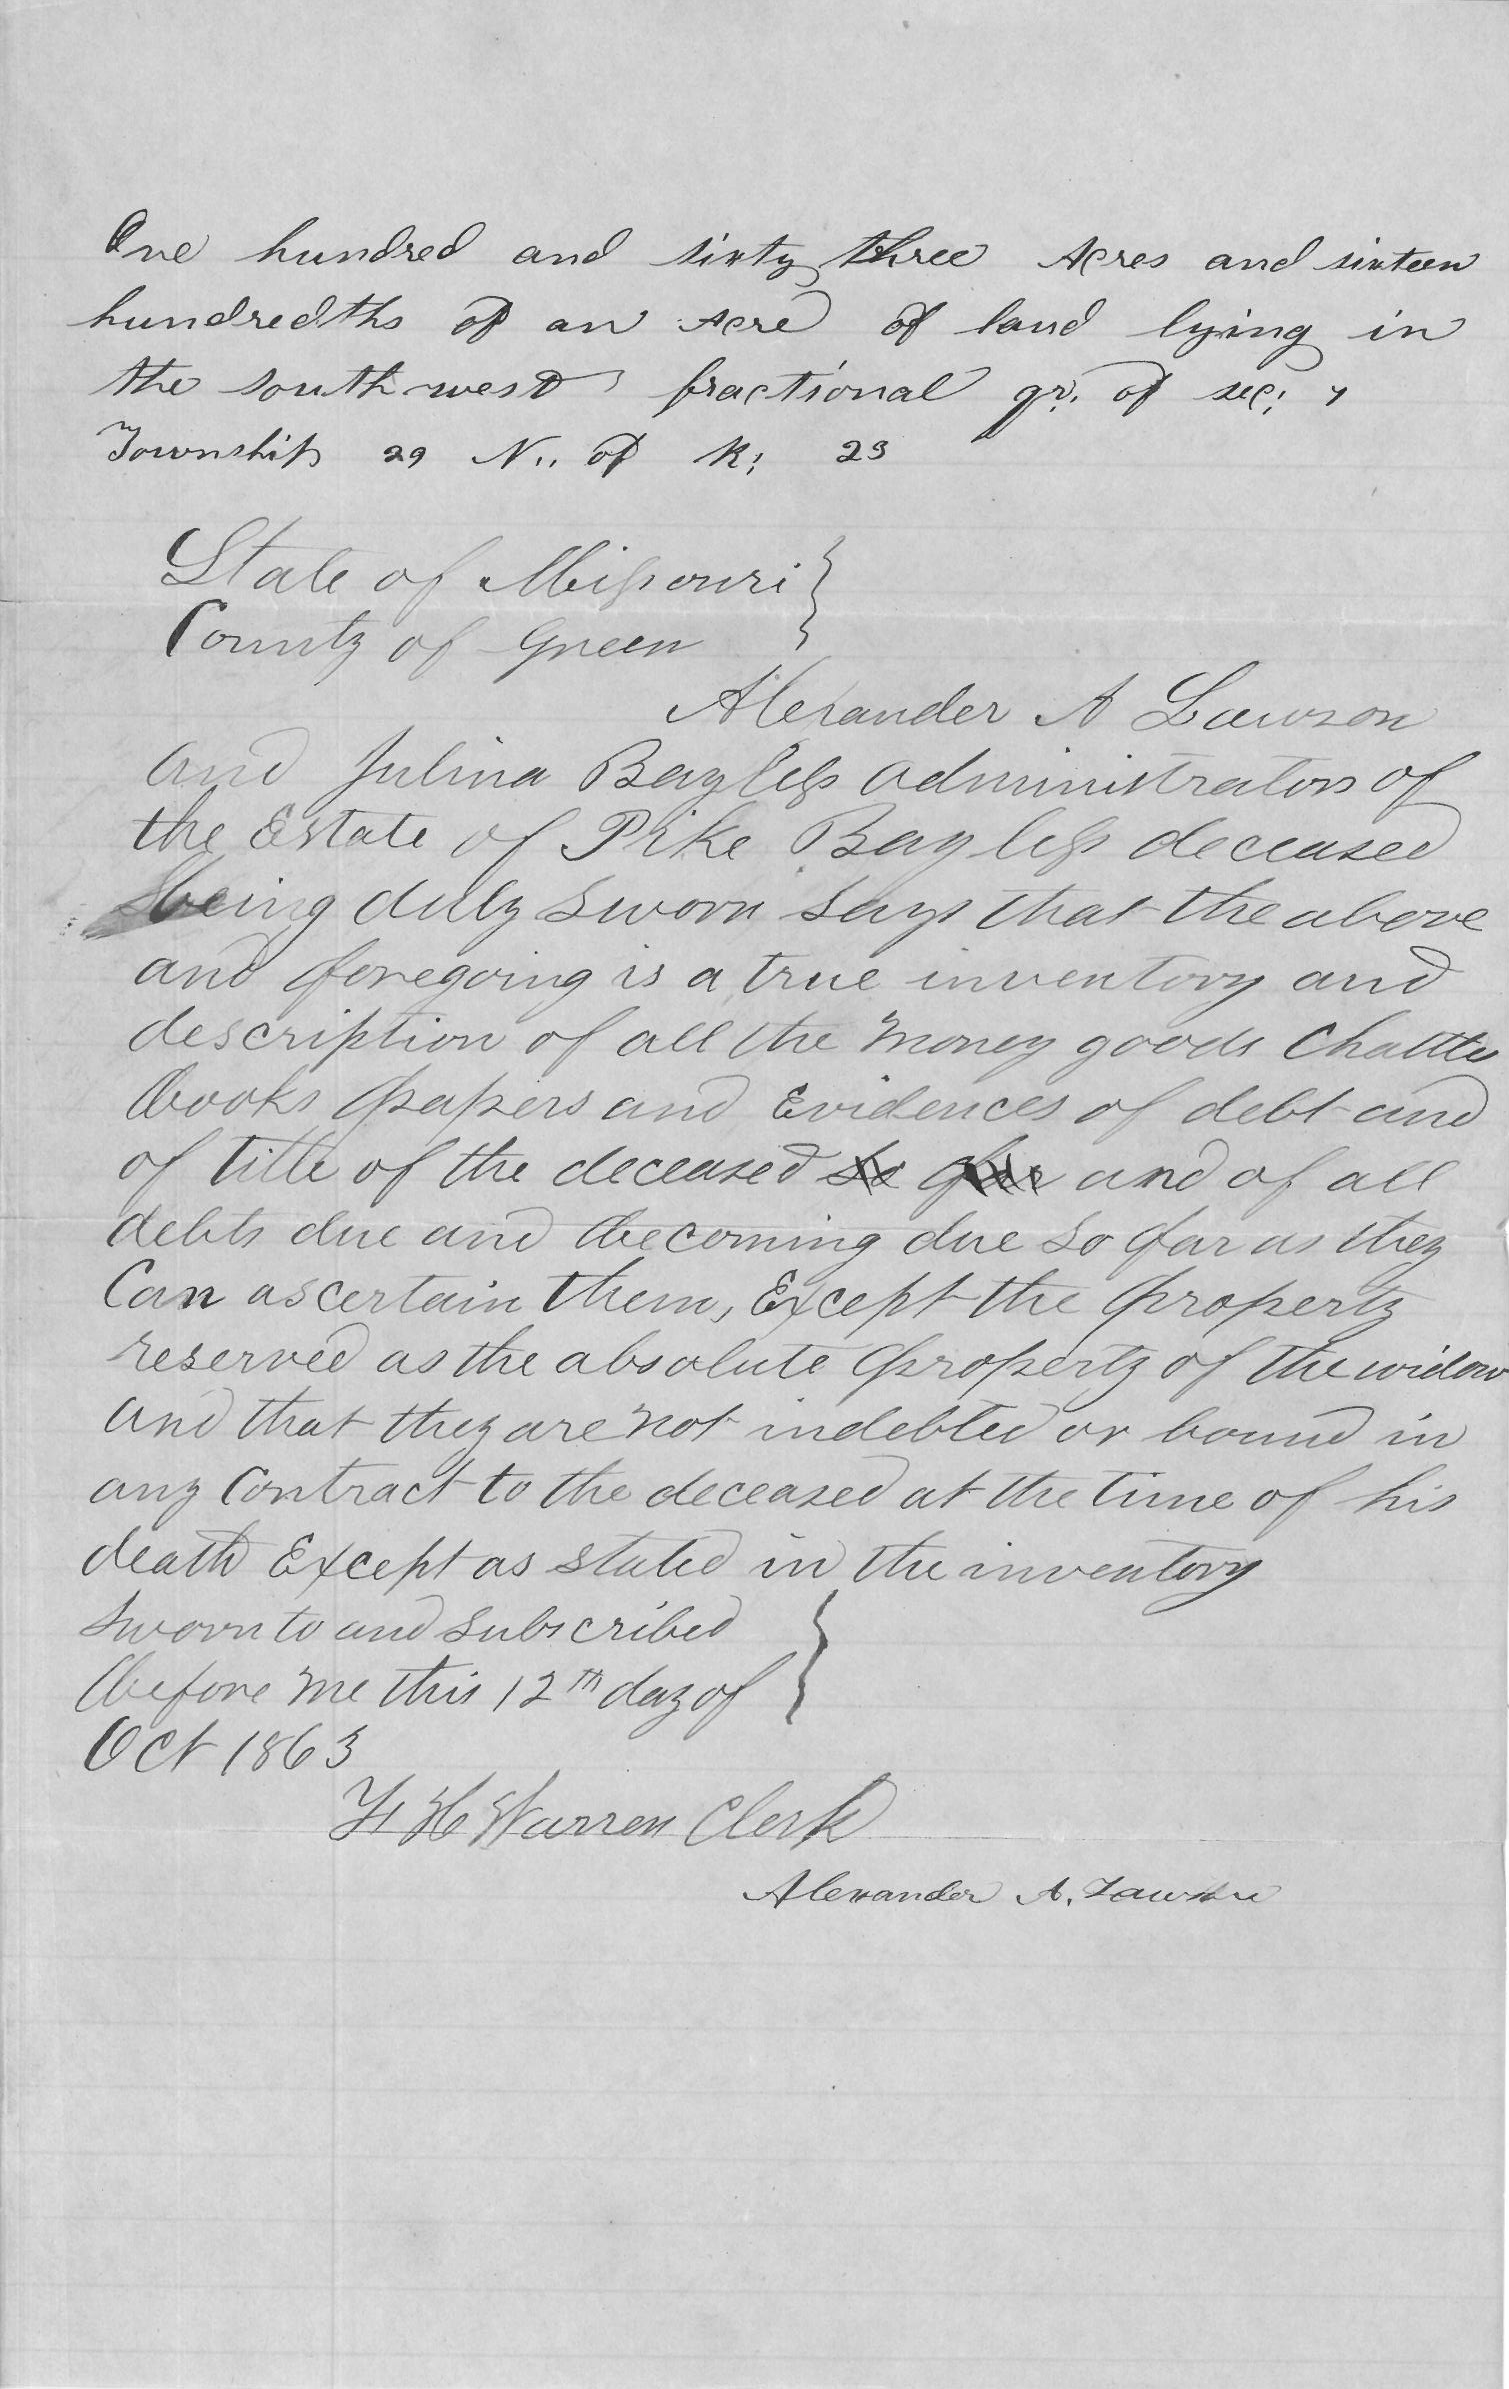 One hundred and sixty three Acres and sixteen
hundredths of an Acre of land lying in
the south west fractional qr. of sec; 7
Township 29 N.. of R; 23
State of Missouri }
County of Green
Alexander A Lawson
and Julina Bayless administrators of
the Estate of Pike Bayless deceased
being duly sworn says that the above
and foregoing is a true inventory and
description of all the money goods Chattles
books papers and Evidences of debt and
of title of the deceased so far and of all
debts due and becoming due so far as they
Can ascertain them, Except the property
reserved as the absolute property of the widow
and that they are not indebted or bound in
any Contract to the deceased at the time of his
death Except as stated in the inventory
Sworn to and subscribed }
before me this 12th day of
Oct 1863
H Warren Clerk
Alexander A. Lawson